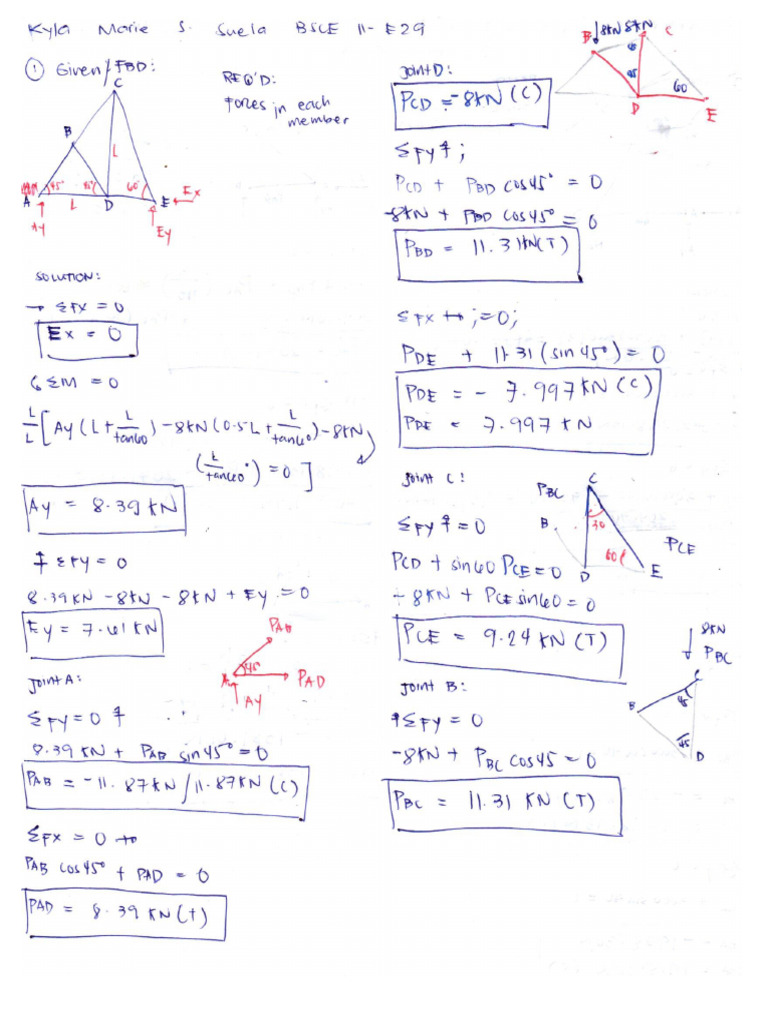 Kyla Marie S. Suela BSCE II-E29
① Given/FBD:
REQ'D:
Forces in each
member
C
B
L
45°
45°
60°
A
L
D
E
Ex
Ay
Ey
SOLUTION:
→ ΣFX = 0
Ex = 0
ΣM = 0
L/L [Ay (L + L/tan60) - 8kN (0.5L + L/tan60°) - 8kN
(L/tan60°) = 0]
Ay = 8.39 kN
ΣFY = 0
8.39kN - 8kN - 8kN + Ey = 0
Ey = 7.61 kN
PAB
45°
A
PAD
Ay
Joint A:
ΣFY = 0
8.39 KN + PAB sin 45° = 0
PAB = -11.87kN / 11.87kN (C)
ΣFX = 0
PAB cos 45° + PAD = 0
PAD = 8.39 KN (T)
8kN 8kN
B
C
45
60
D
E
Joint D:
PCD = -8kN (C)
ΣFY ;
PCD + PBD cos 45° = 0
-8kN + PBD cos 45° = 0
PBD = 11.31kN (T)
ΣFX ;=0;
PDE + 11.31 (sin 45°) = 0
PDE = - 7.997 KN (C)
PDE = 7.997 KN
Joint C:
PBC
C
B
30
PCE
60
D
E
ΣFY = 0
PCD + sin60 PCE = 0
- 8KN + PCE sin60 = 0
PCE = 9.24 KN (T)
8kN
PBC
C
45
B
45
D
Joint B:
ΣFY = 0
-8KN + PBC cos 45 = 0
PBC = 11.31 KN (T)